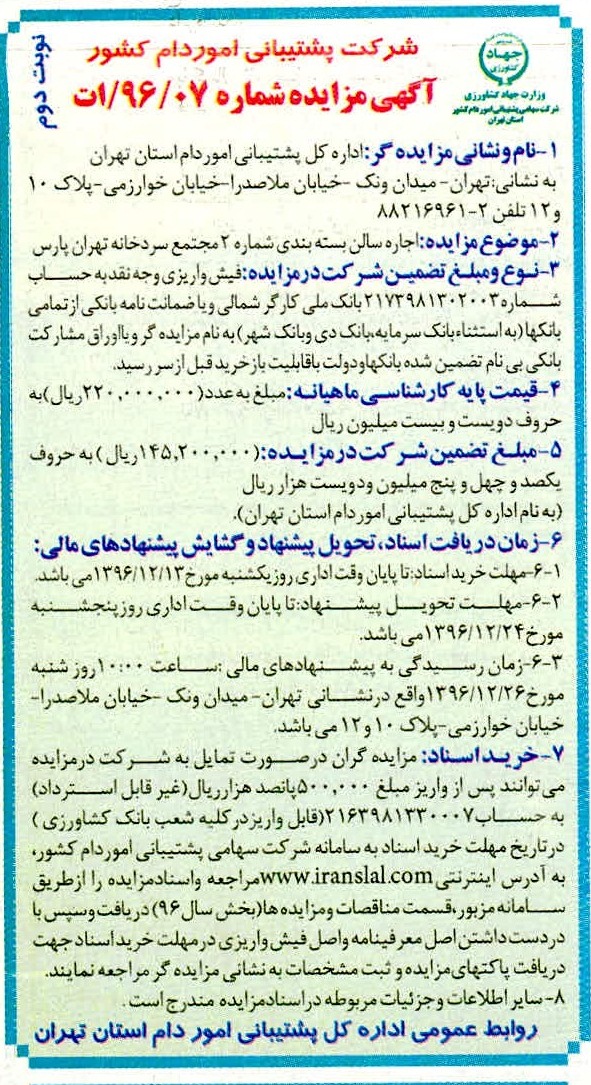 نوبت دوم
جهاد
کشاورزی
وزارت جهاد کشاورزی
شرکت سهامی پشتیبانی امور دام کشور
استان تهران
شرکت پشتیبانی امور دام کشور
آگهی مزایده شماره ۹۶/۰۷/ات
۱-نام و نشانی مزایده گر: اداره کل پشتیبانی امور دام استان تهران
به نشانی: تهران- میدان ونک -خیابان ملاصدرا-خیابان خوارزمی-پلاک ۱۰
و ۱۲ تلفن ۲-۸۸۲۱۶۹۶۱
۲-موضوع مزایده: اجاره سالن بسته بندی شماره ۲ مجتمع سردخانه تهران پارس
۳-نوع و مبلغ تضمین شرکت در مزایده: فیش واریزی وجه نقد به حساب
شماره ۲۱۷۳۹۸۱۳۰۲۰۰۳ بانک ملی کارگر شمالی و یا ضمانت نامه بانکی از تمامی
بانکها (به استثناء بانک سرمایه، بانک دی و بانک شهر) به نام مزایده گر و یا اوراق مشارکت
بانکی بی نام تضمین شده بانکها و دولت با قابلیت بازخرید قبل از سررسید.
۴-قیمت پایه کارشناسی ماهیانه: مبلغ به عدد (۲۲۰,۰۰۰,۰۰۰ ریال) به
حروف دویست و بیست میلیون ریال
۵-مبلغ تضمین شرکت در مزایده: (۱۴۵,۲۰۰,۰۰۰ ریال) به حروف
یکصد و چهل و پنج میلیون و دویست هزار ریال
(به نام اداره کل پشتیبانی امور دام استان تهران).
۶-زمان دریافت اسناد، تحویل پیشنهاد و گشایش پیشنهادهای مالی:
۶-۱-مهلت خرید اسناد: تا پایان وقت اداری روز یکشنبه مورخ ۱۳۹۶/۱۲/۱۳ می باشد.
۶-۲-مهلت تحویل پیشنهاد: تا پایان وقت اداری روز پنجشنبه
مورخ ۱۳۹۶/۱۲/۲۴ می باشد.
۶-۳-زمان رسیدگی به پیشنهادهای مالی: ساعت ۱۰:۰۰ روز شنبه
مورخ ۱۳۹۶/۱۲/۲۶ واقع در نشانی تهران- میدان ونک -خیابان ملاصدرا-
خیابان خوارزمی-پلاک ۱۰ و ۱۲ می باشد.
۷-خرید اسناد: مزایده گران در صورت تمایل به شرکت در مزایده
می توانند پس از واریز مبلغ ۵۰۰,۰۰۰ پانصد هزار ریال (غیر قابل استرداد)
به حساب ۲۱۶۳۹۸۱۳۳۰۰۰۷ (قابل واریز در کلیه شعب بانک کشاورزی)
در تاریخ مهلت خرید اسناد به سامانه شرکت سهامی پشتیبانی امور دام کشور،
به آدرس اینترنتی www.iranslal.com مراجعه و اسناد مزایده را از طریق
سامانه مزبور، قسمت مناقصات و مزایده ها (بخش سال ۹۶) دریافت و سپس با
در دست داشتن اصل معرفینامه و اصل فیش واریزی در مهلت خرید اسناد جهت
دریافت پاکتهای مزایده و ثبت مشخصات به نشانی مزایده گر مراجعه نمایند.
۸- سایر اطلاعات و جزئیات مربوطه در اسناد مزایده مندرج است.
روابط عمومی اداره کل پشتیبانی امور دام استان تهران